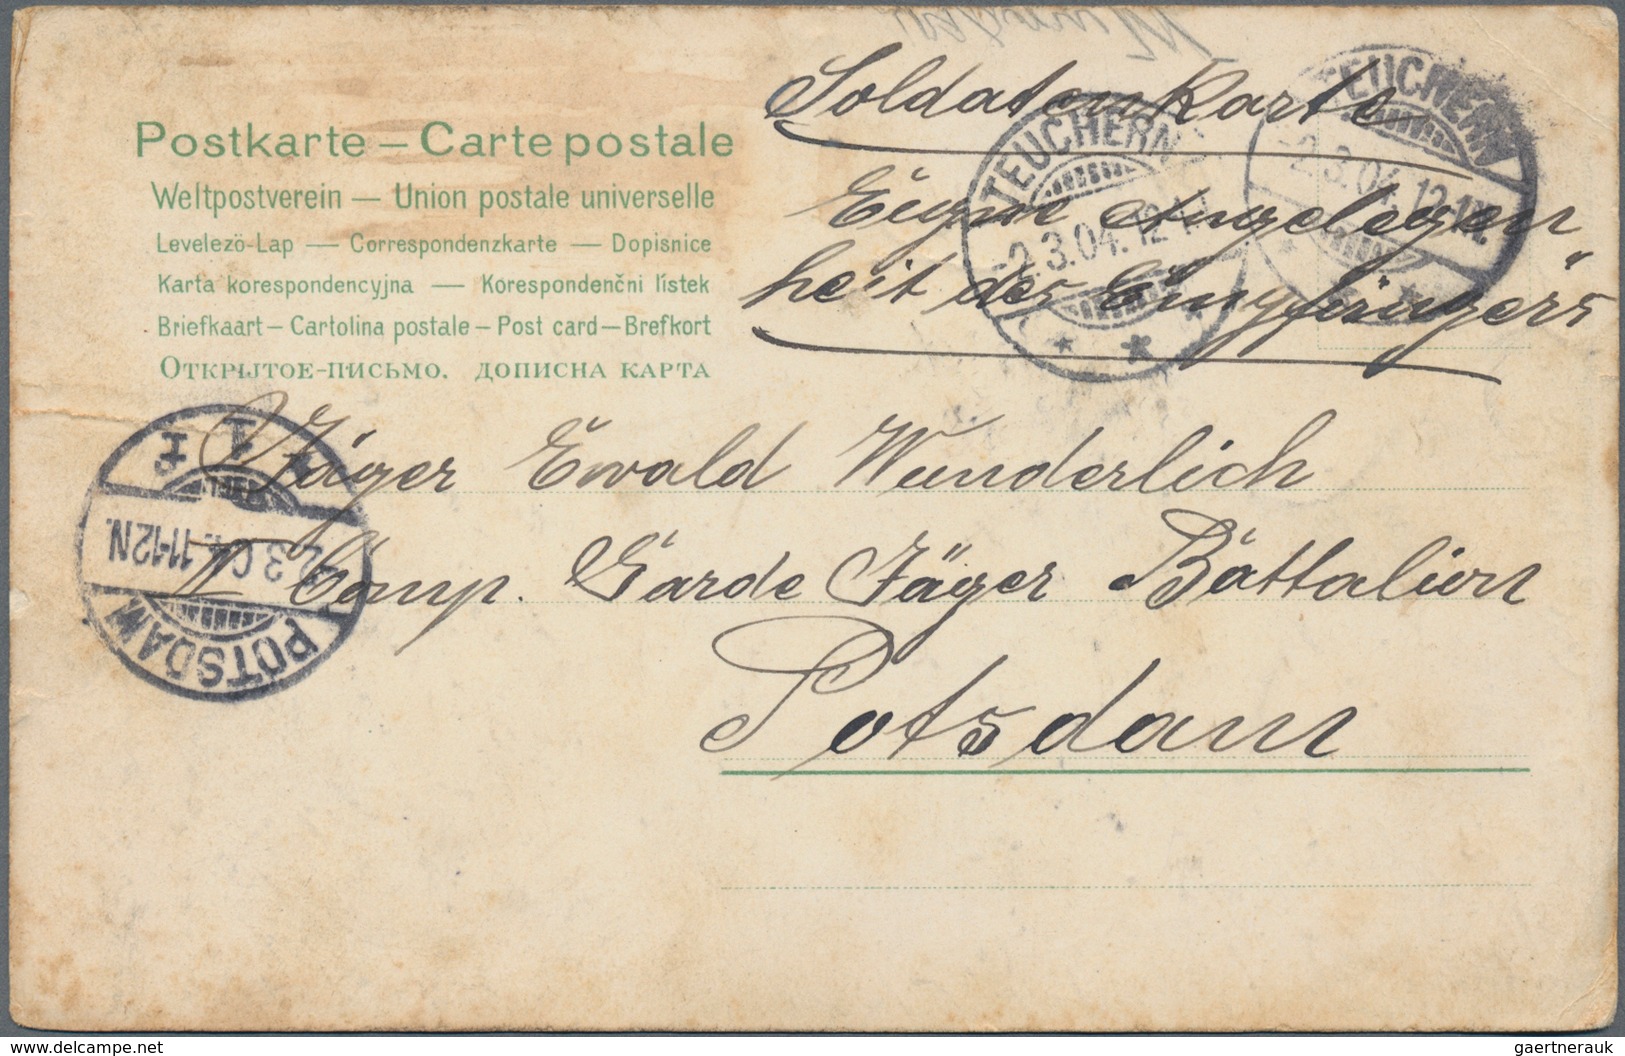 Soldaten Karte
Eigne Angelegen"
heit des Empfängers
Postkarte – Carte postale
Weltpostverein — Union postale universelle
Levelezö-Lap — Correspondenzkarte — Dopisnice
Karta korespondencyjna — Korespondenčni lístek
Briefkaart – Cartolina postale – Post card – Brefkort
Открытое-письмо. дописна карта
TEUCHERN
-2.3.04. 12-1N.
TEUCHERN
-2.3.04. 12-1N.
Jäger Ewald Wunderlich
2 Comp. Garde Jäger Battalion
Potsdam
POTSDAM
2.3.04. 11-12N.
* 1 f
www.delcampe.net
gaertnerauk